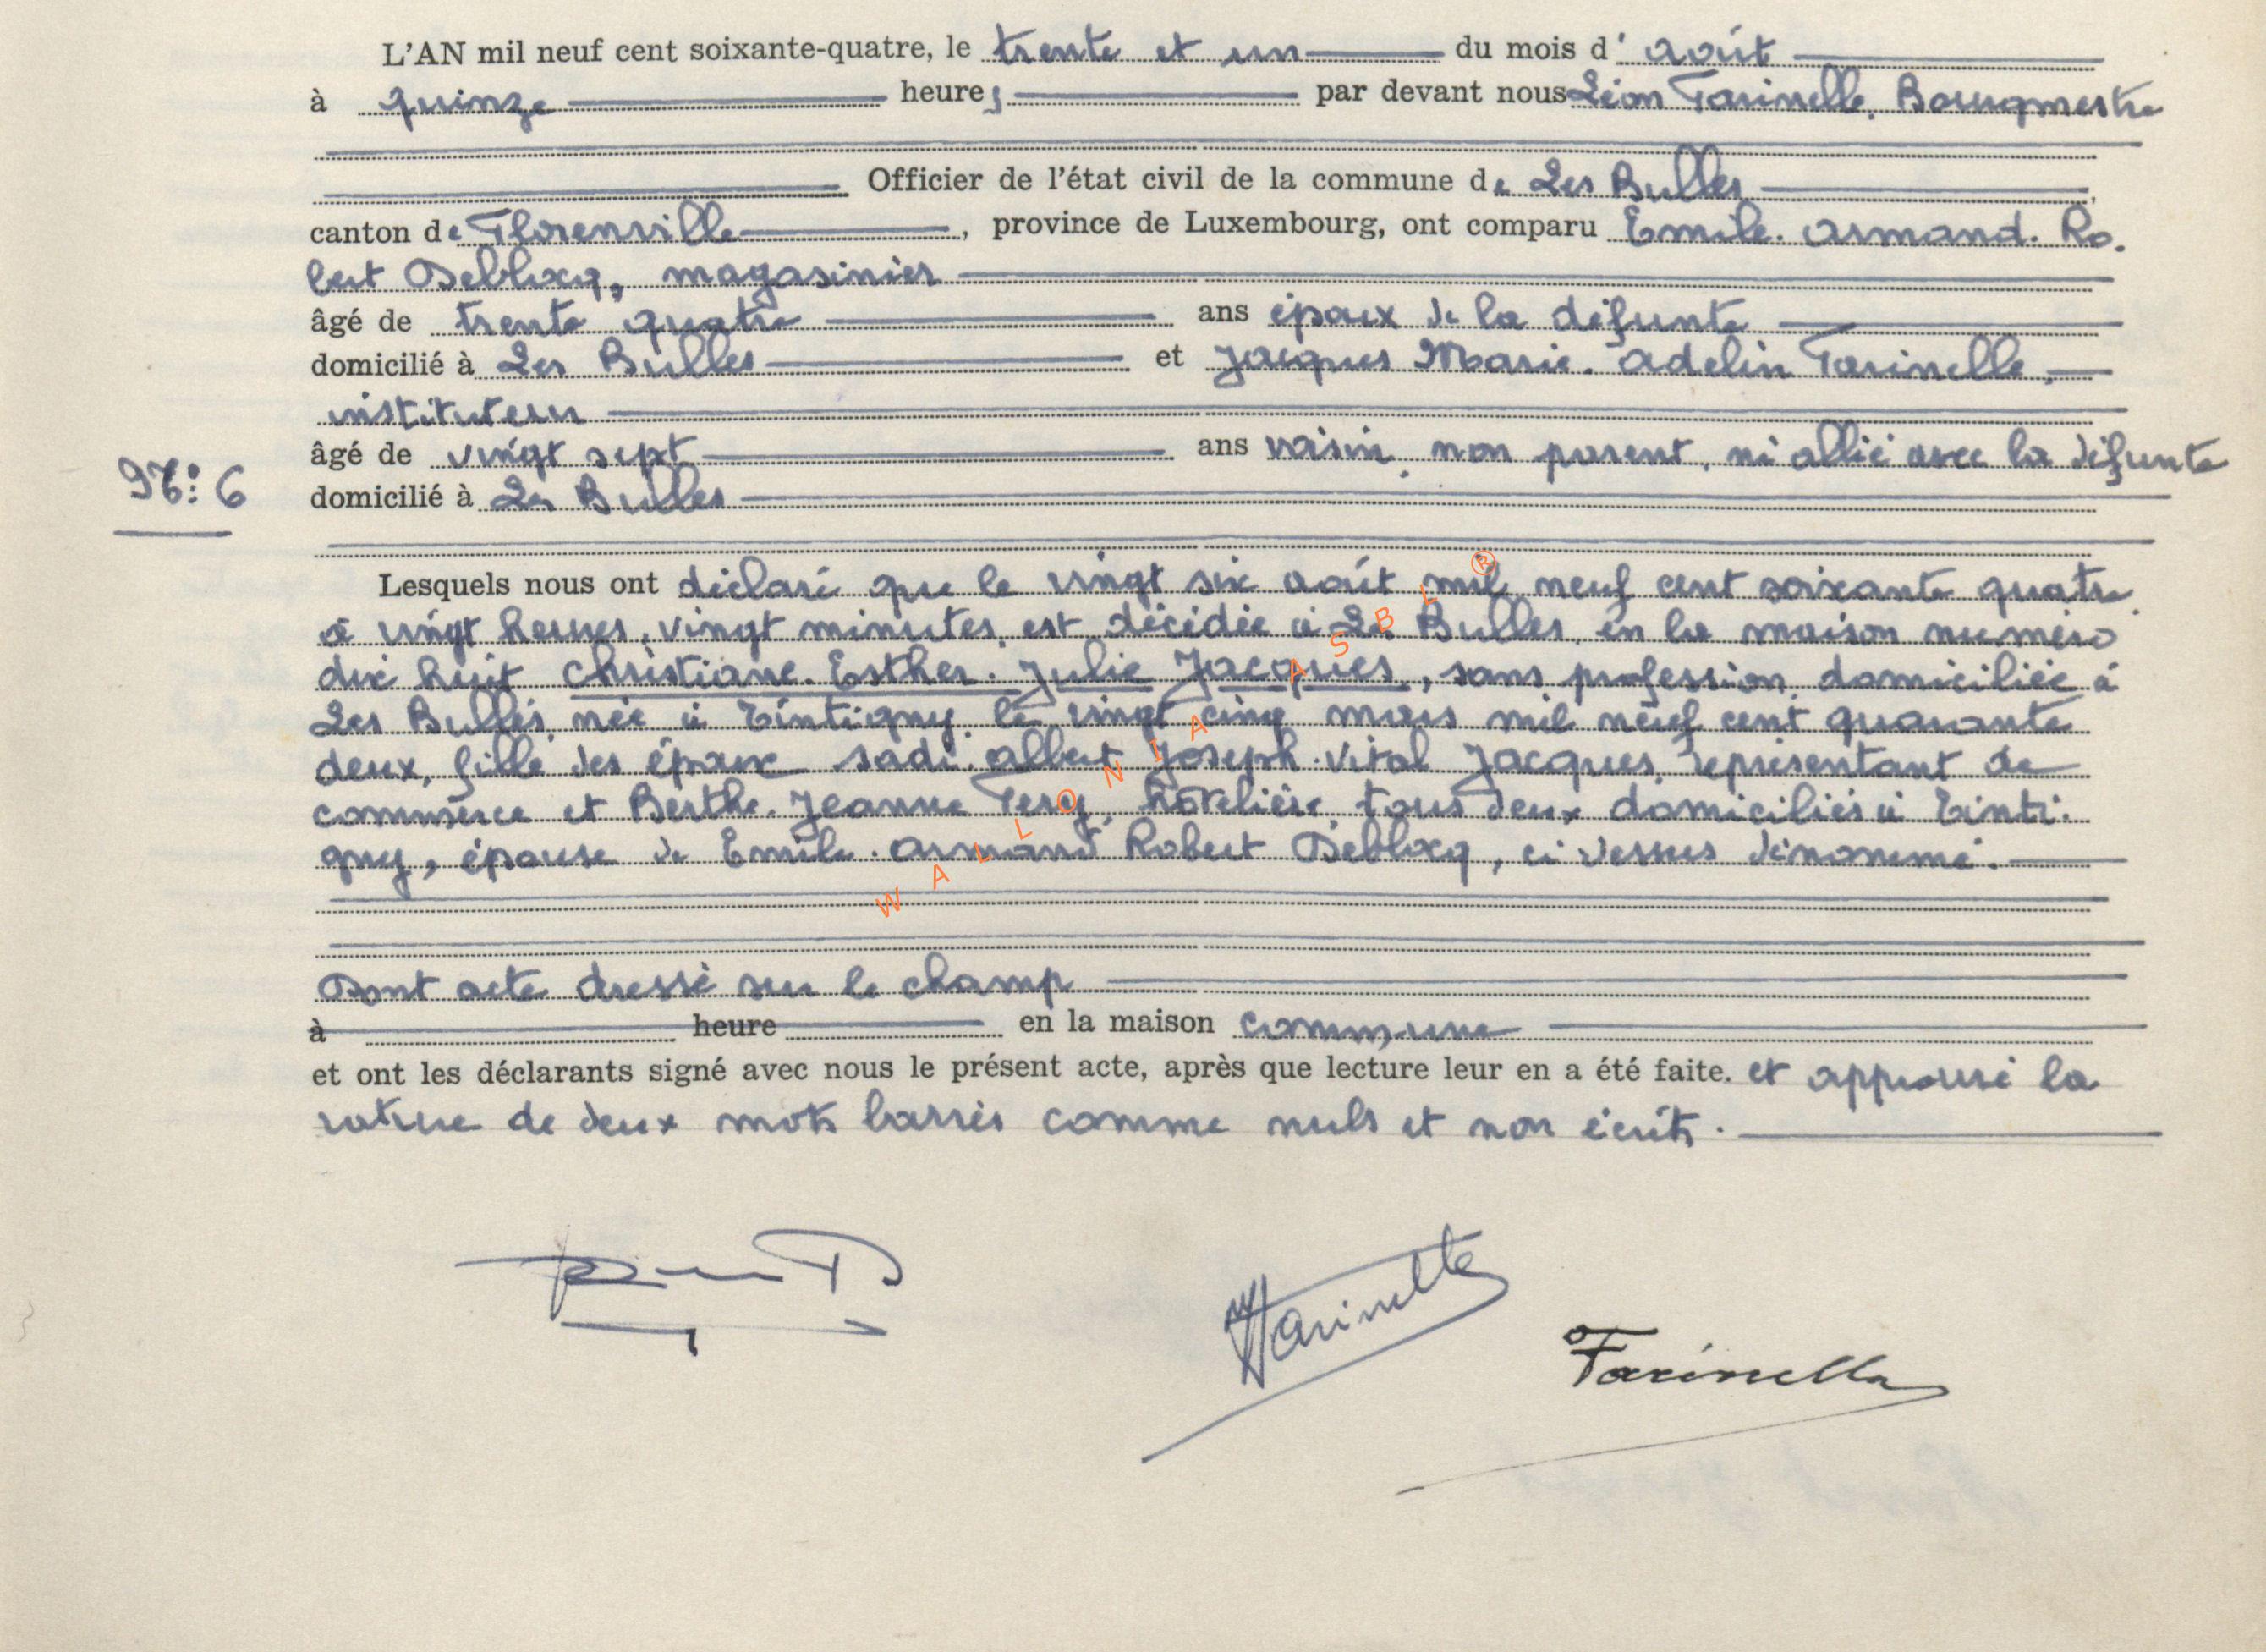 L'AN mil neuf cent soixante-quatre, le trente et un du mois d'août
à quinze heures par devant nous Léon Farinelle, Bourgmestre
Officier de l'état civil de la commune de Les Bulles
canton de Florenville, province de Luxembourg, ont comparu Emile. Armand. Ro.
bert Deblocq, magasinier
âgé de trente quatre ans époux de la défunte
domicilié à Les Bulles et Jacques Marie. Adelin Farinelle,
instituteur
âgé de vingt sept ans voisin, non parent, ni allié avec la défunte
N°: 6
domicilié à Les Bulles
Lesquels nous ont déclaré que le vingt six août mil neuf cent soixante quatre
à vingt heures, vingt minutes, est décédée à Les Bulles, en la maison numéro
dix huit Christiane. Esther. Julie Jacques, sans profession, domiciliée à
Les Bulles, née à Tintigny, le vingt cinq mars mil neuf cent quarante
deux, fille des époux Sadi. Albert Joseph. Vital Jacques, représentant de
commerce et Berthe. Jeanne, hôtelière, tous deux domiciliés à Tinti.
gny, épouse de Emile. Armand Robert Deblocq, ci dessus dénommé.
Dont acte dressé sur le champ
à heure en la maison commune
et ont les déclarants signé avec nous le présent acte, après que lecture leur en a été faite. et approuvé la
rature de deux mots barrés comme nuls et non écrits.
Farinelle
Farinelle
WALLONIA ASBL ®